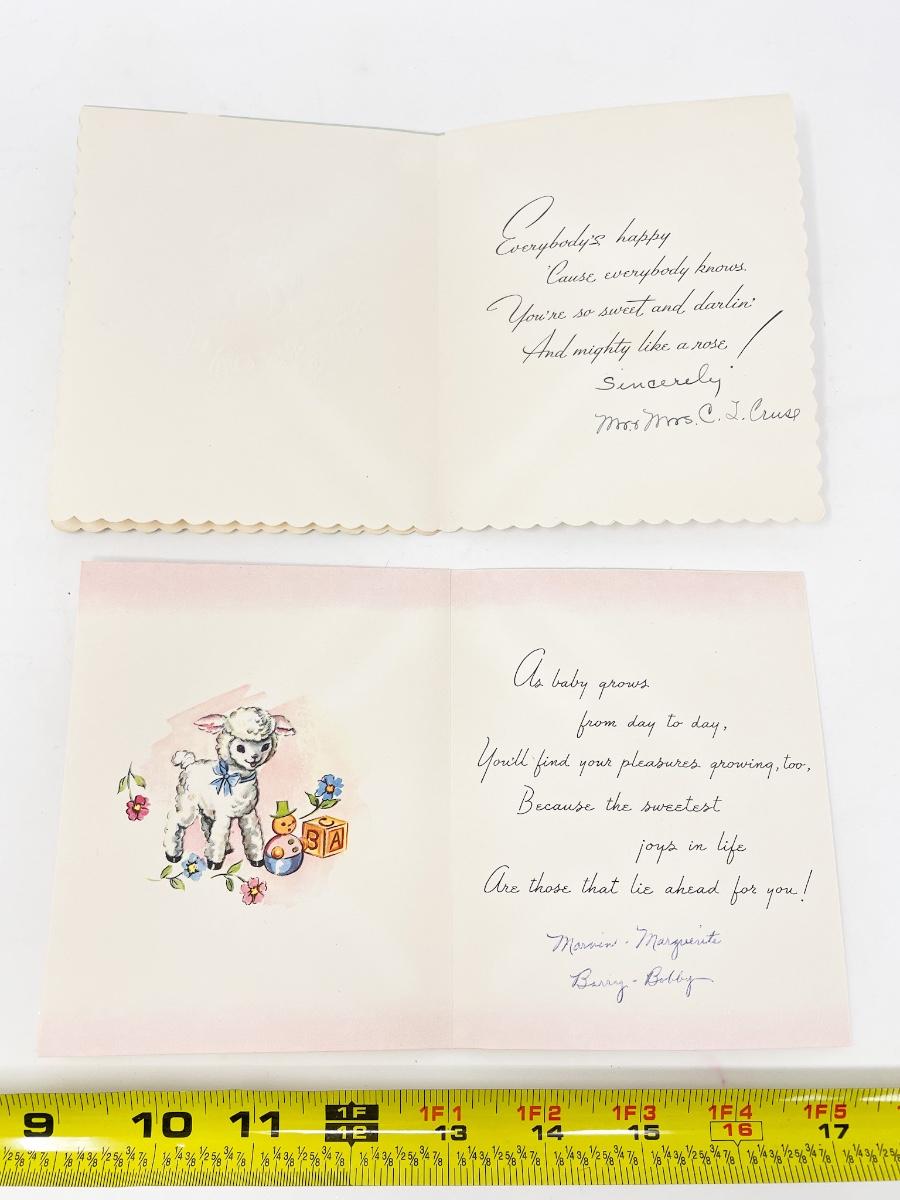 Everybody's happy
'Cause everybody knows
You're so sweet and darlin'
And mighty like a rose!
Sincerely
Mr & Mrs. C. L. Cruse
As baby grows
from day to day,
You'll find your pleasures growing, too,
Because the sweetest
joys in life
Are those that lie ahead for you!
Marvin - Marguerite
Barry - Bobby
C
B A
9 10 11 1F 12 1F1 13 1F2 14 1F3 15 1F4 16 1F5 17